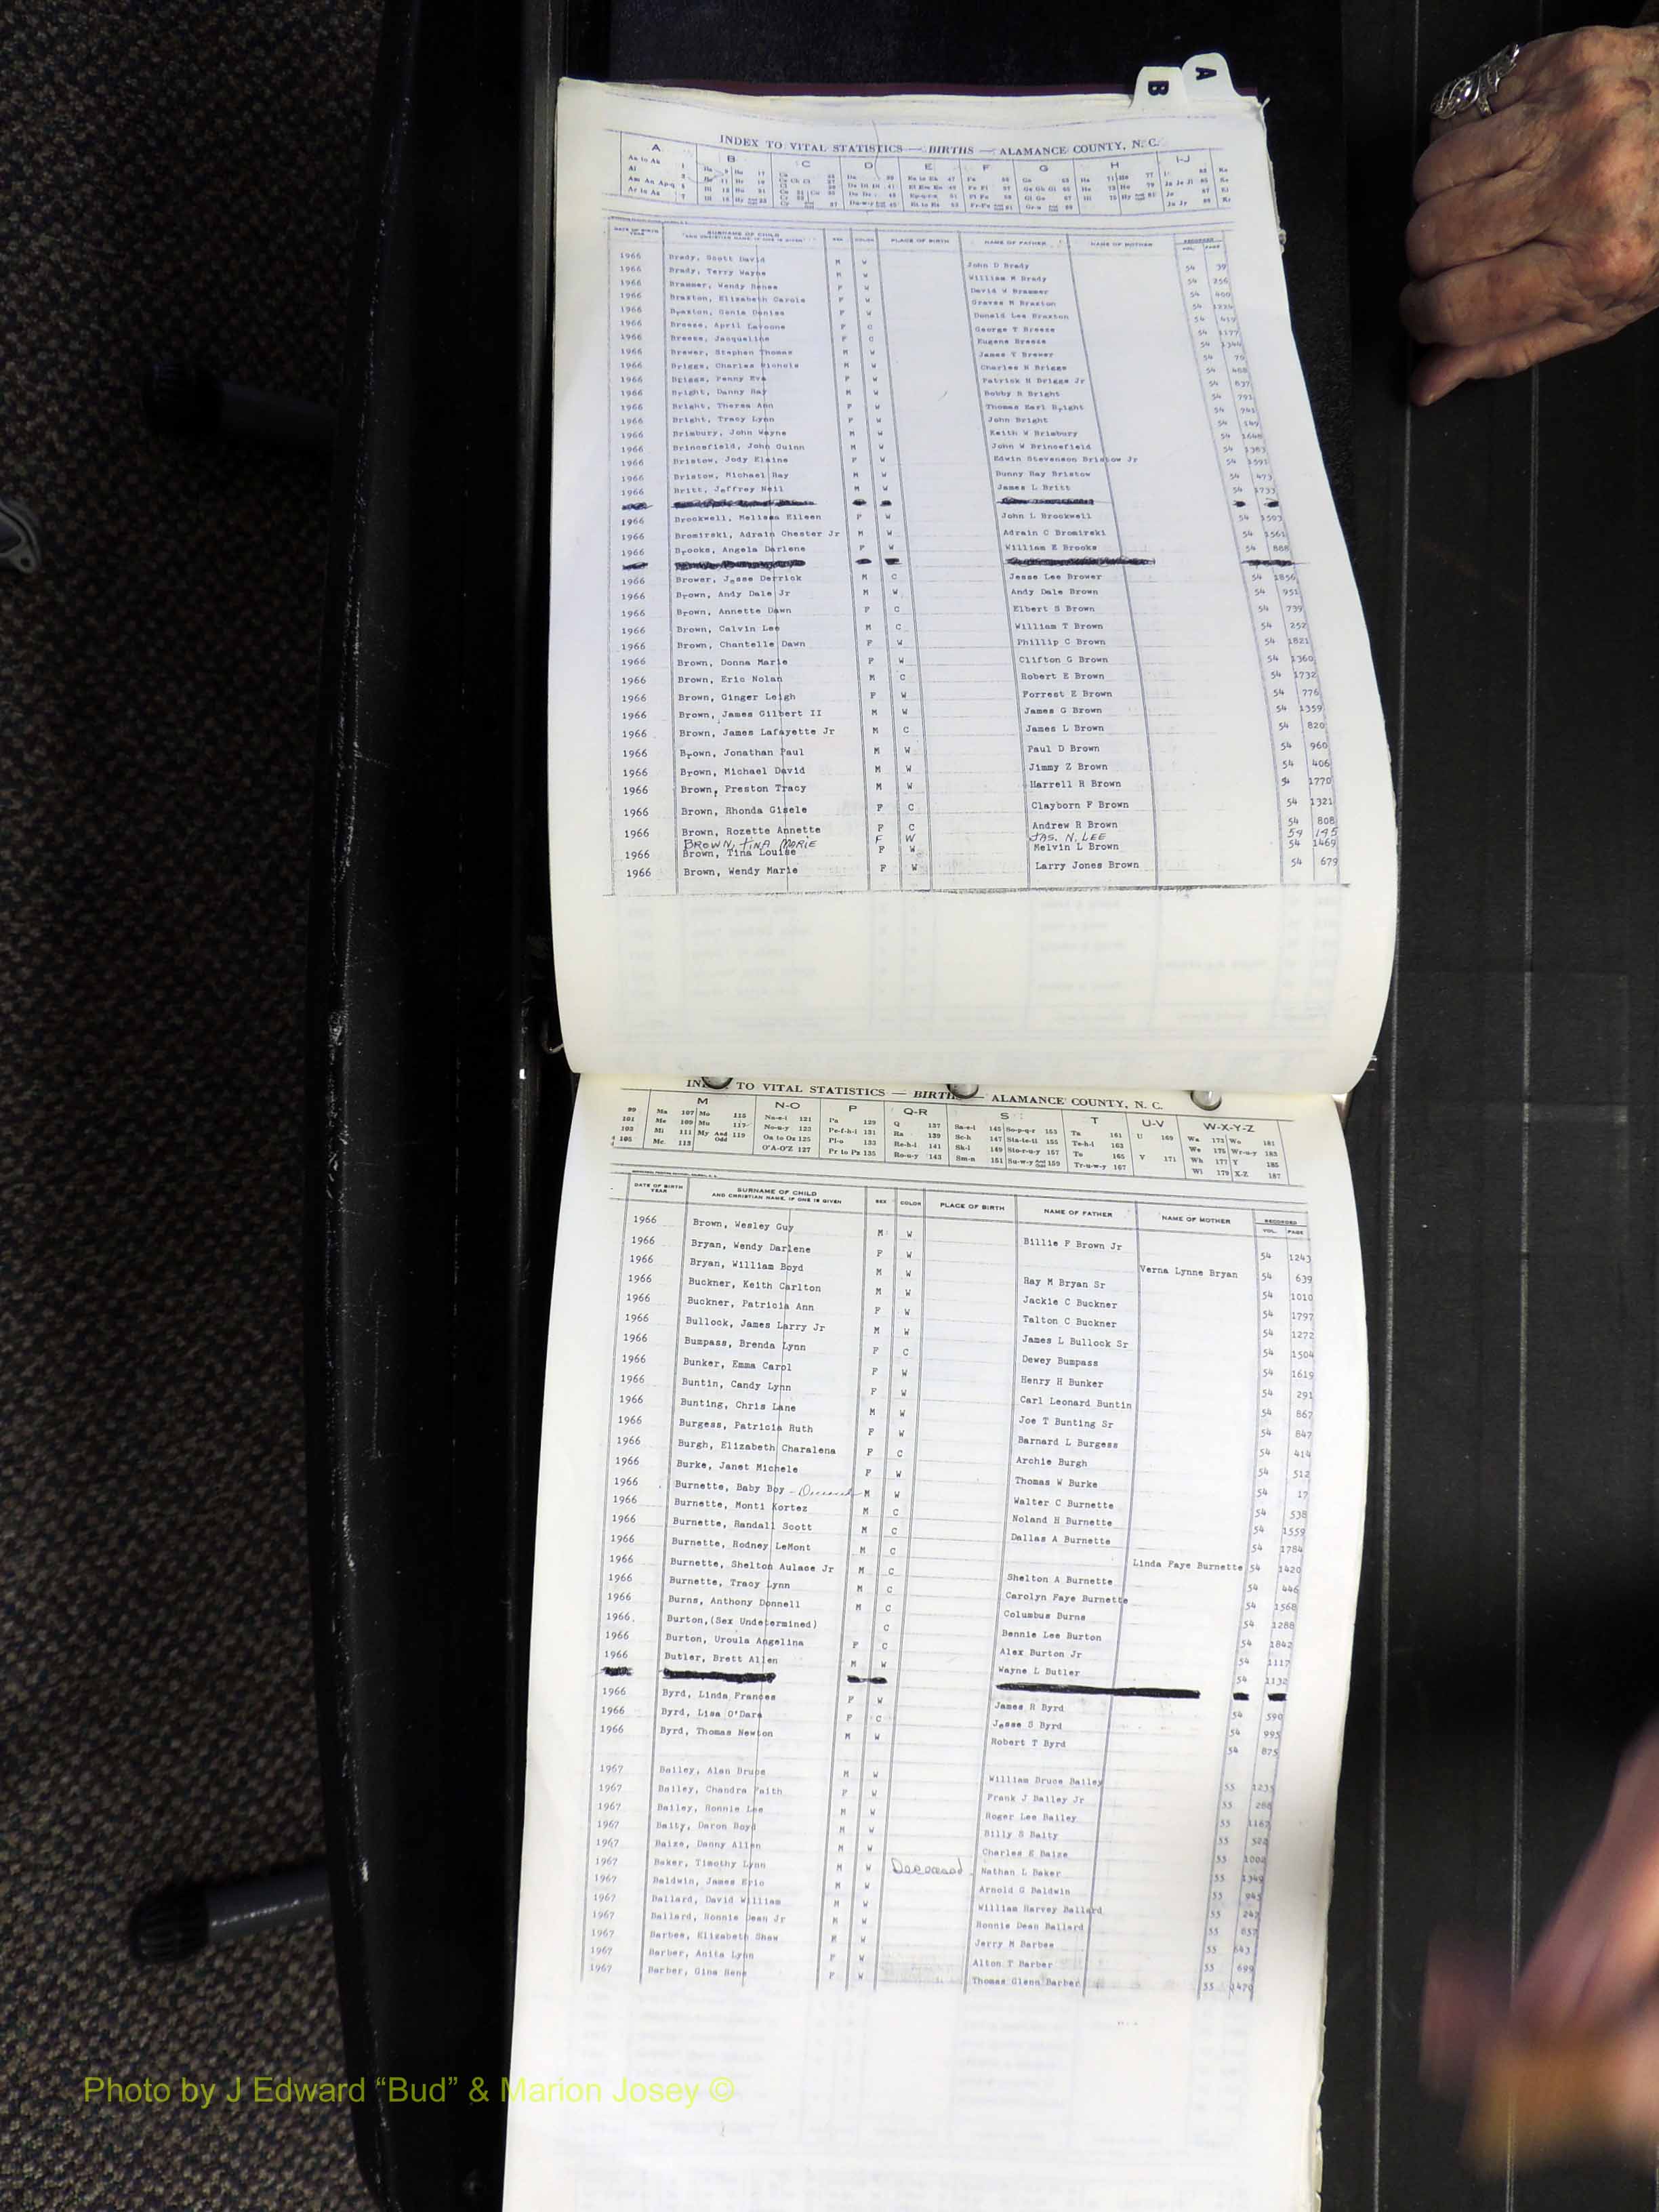 A
B
INDEX TO VITAL STATISTICS — BIRTHS — ALAMANCE COUNTY, N. C.
A B C D E F G H I-J
DATE OF BIRTH YEAR SURNAME OF CHILD AND CHRISTIAN NAME, IF ONE IS GIVEN SEX COLOR PLACE OF BIRTH NAME OF FATHER NAME OF MOTHER RECORDED VOL. PAGE
1966 Brady, Scott David M W John D Brady 54 39
1966 Brady, Terry Wayne M W William M Brady 54 256
1966 Brammer, Wendy Renee F W David W Brammer 54 400
1966 Braxton, Elizabeth Carole F W Graves M Braxton 54
1966 Braxton, Sonia Denise F W Donald Lee Braxton 54 419
1966 Breeze, April Lavoone F C George T Breeze 54 1177
1966 Breeze, Jacqueline F C Eugene Breeze 54 1344
1966 Brewer, Stephen Thomas M W James Y Brewer 54 70
1966 Briggs, Charles Nichols M W Charles N Briggs 54 488
1966 Briggs, Penny Eva F W Patrick H Briggs Jr 54 837
1966 Bright, Danny Ray M W Bobby R Bright 54 791
1966 Bright, Theresa Ann F W Thomas Earl Bright 54 941
1966 Bright, Tracy Lynn F W John Bright 54 149
1966 Brimbury, John Wayne M W Keith W Brimbury 54 1668
1966 Brincefield, John Quinn M W John W Brincefield 54 1383
1966 Bristow, Jody Elaine F W Edwin Stevenson Bristow Jr 54 1591
1966 Bristow, Michael Ray M W Dunny Ray Bristow 54 473
1966 Britt, Jeffrey Neil M W James L Britt 54 1733
1966 Brockwell, Melissa Eileen F W John L Brockwell 54 1503
1966 Bromirski, Adrain Chester Jr M W Adrain C Bromirski 54 1561
1966 Brooks, Angela Darlene F W William E Brooks 54 888
1966 Brower, Jesse Derrick M C Jesse Lee Brower 54 1856
1966 Brown, Andy Dale Jr M W Andy Dale Brown 54 951
1966 Brown, Annette Dawn F C Elbert S Brown 54 739
1966 Brown, Calvin Lee M C William T Brown 54 252
1966 Brown, Chantelle Dawn F W Phillip C Brown 54 1821
1966 Brown, Donna Marie F W Clifton G Brown 54 1360
1966 Brown, Eric Nolan M C Robert E Brown 54 1732
1966 Brown, Ginger Leigh F W Forrest E Brown 54 776
1966 Brown, James Gilbert II M W James G Brown 54 1359
1966 Brown, James Lafayette Jr M C James L Brown 54 820
1966 Brown, Jonathan Paul M W Paul D Brown 54 960
1966 Brown, Michael David M W Jimmy Z Brown 54 406
1966 Brown, Preston Tracy M W Harrell R Brown 54 1770
1966 Brown, Rhonda Gisele F C Clayborn F Brown 54 1321
1966 Brown, Rozette Annette F C Andrew R Brown 54 808
BROWN, TINA MARIE F W JAS. N. LEE 59 195
1966 Brown, Tina Louise F W Melvin L Brown 54 1469
1966 Brown, Wendy Marie F W Larry Jones Brown 54 679
TO VITAL STATISTICS — BIRTHS — ALAMANCE COUNTY, N. C.
M N-O P Q-R S T U-V W-X-Y-Z
99 Ma 107 Mo 115 Na-e-i 121 Pa 129 Q 137 Sa-e-i 145 So-p-q-r 153 Ta 161 U 169 Wa 173 Wo 181
101 Me 109 Mu 117 No-u-y 123 Pe-f-h-i 131 Ra 139 Sc-h 147 Sta-te-ti 155 Te-h-i 163 We 175 Wr-u-y 183
103 Mi 111 My And Odd 119 Oa to Oz 125 Pl-o 133 Re-h-i 141 Sk-l 149 Sto-r-u-y 157 To 165 V 171 Wh 177 Y 185
105 Mc. 113 O'A-O'Z 127 Pr to Pz 135 Ro-u-y 143 Sm-n 151 Su-w-y 159 Tr-u-w-y 167 Wi 179 X-Z 187
DATE OF BIRTH YEAR SURNAME OF CHILD AND CHRISTIAN NAME, IF ONE IS GIVEN SEX COLOR PLACE OF BIRTH NAME OF FATHER NAME OF MOTHER RECORDED VOL. PAGE
1966 Brown, Wesley Guy M W Billie F Brown Jr 54 1243
1966 Bryan, Wendy Darlene F W Verna Lynne Bryan 54 639
1966 Bryan, William Boyd M W Ray M Bryan Sr 54 1010
1966 Buckner, Keith Carlton M W Jackie C Buckner 54 1797
1966 Buckner, Patricia Ann F W Talton C Buckner 54 1272
1966 Bullock, James Larry Jr M W James L Bullock Sr 54 1504
1966 Bumpass, Brenda Lynn F C Dewey Bumpass 54 1619
1966 Bunker, Emma Carol F W Henry H Bunker 54 291
1966 Buntin, Candy Lynn F W Carl Leonard Buntin 54 867
1966 Bunting, Chris Lane M W Joe T Bunting Sr 54 847
1966 Burgess, Patricia Ruth F W Barnard L Burgess 54 414
1966 Burgh, Elizabeth Charalena F C Archie Burgh 54 512
1966 Burke, Janet Michele F W Thomas W Burke 54 17
1966 Burnette, Baby Boy - Deceased M W Walter C Burnette 54 538
1966 Burnette, Monti Kortez M C Noland H Burnette 54 1559
1966 Burnette, Randall Scott M C Dallas A Burnette 54 1784
1966 Burnette, Rodney LeMont M C Linda Faye Burnette 54 1420
1966 Burnette, Shelton Aulace Jr M C Shelton A Burnette 54 446
1966 Burnette, Tracy Lynn M C Carolyn Faye Burnette 54 1568
1966 Burns, Anthony Donnell M C Columbus Burns 54 1288
1966 Burton,(Sex Undetermined) C Bennie Lee Burton 54 1842
1966 Burton, Uroula Angelina F C Alex Burton Jr 54 1117
1966 Butler, Brett Allen M W Wayne L Butler 54 1132
1966 Byrd, Linda Frances F W James R Byrd 54 590
1966 Byrd, Lisa O'Dara F C Jesse S Byrd 54 995
1966 Byrd, Thomas Newton M W Robert T Byrd 54 875
1967 Bailey, Alan Bruce M W William Bruce Bailey 55 1235
1967 Bailey, Chandra Faith F W Frank J Bailey Jr 55 288
1967 Bailey, Ronnie Lee M W Roger Lee Bailey 55 1167
1967 Baity, Daron Boyd M W Billy S Baity 55 522
1967 Baize, Danny Allen M W Charles E Baize 55 1002
1967 Baker, Timothy Lynn M W Deceased Nathan L Baker 55 1349
1967 Baldwin, James Eric M W Arnold G Baldwin 55 945
1967 Ballard, David William M W William Harvey Ballard 55 247
1967 Ballard, Ronnie Dean Jr M W Ronnie Dean Ballard 55 657
1967 Barbee, Elizabeth Shaw W Jerry M Barbee 55 643
1967 Barber, Anita Lynn F W Alton T Barber 55 699
1967 Barber, Gina Rene F W Thomas Glenn Barber 55 1470
Photo by J Edward “Bud” & Marion Josey ©